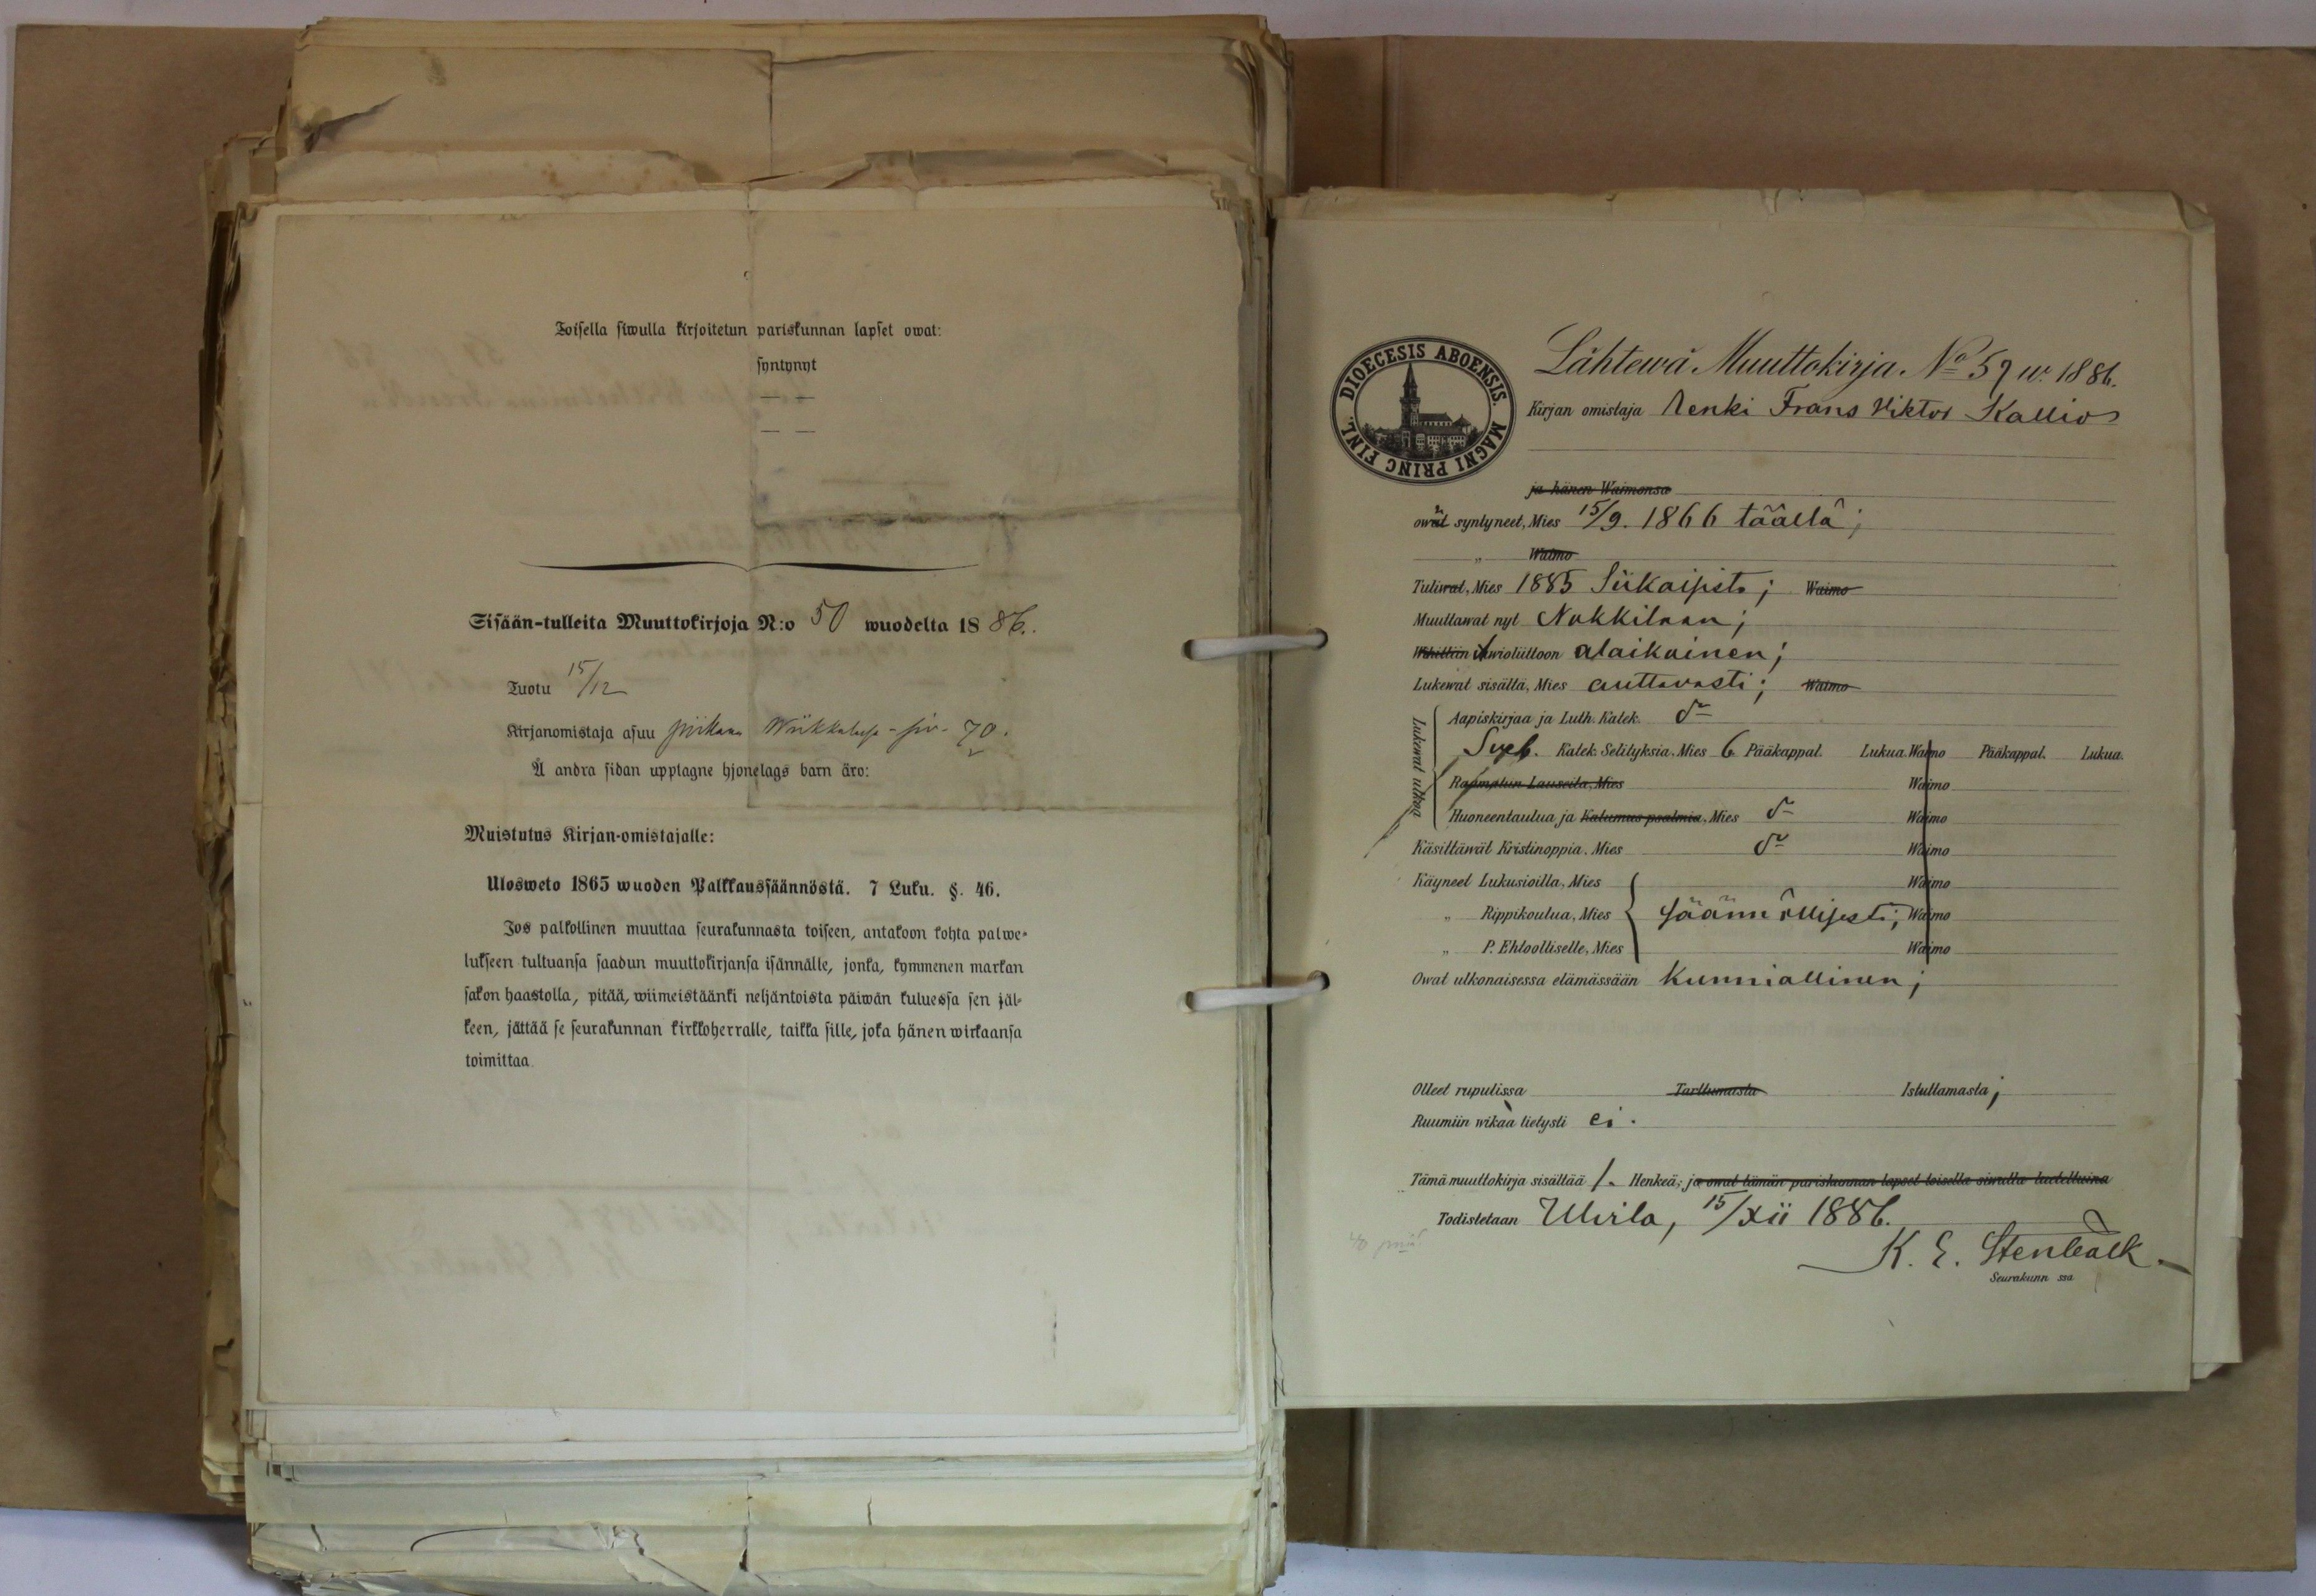 Toisella siwulla kirjoitetun pariskunnan lapset owat:
syntynyt
— —
— —
Sisään-tulleita Muuttokirjoja N:o 50 wuodelta 1886.
Tuotu 15/12
Kirjanomistaja asuu piikana siv. 70.
Å andra sidan upptagne hjonelags barn äro:
Muistutus Kirjan-omistajalle:
Ulosweto 1865 wuoden Palkkaussäännöstä. 7 Luku. §. 46.
Jos palkollinen muuttaa seurakunnasta toiseen, antakoon kohta palwe-
lukseen tultuansa saadun muuttokirjansa isännälle, jonka, kymmenen markan
sakon haastolla, pitää, wiimeistäänki neljäntoista päiwän kuluessa sen jäl-
keen, jättää se seurakunnan kirkkoherralle, taikka sille, joka hänen wirkaansa
toimittaa.
DIOECESIS ABOENSIS. MAGNI PRINC FINL.
Lähtewä Muuttokirja No 59 w. 1886.
Kirjan omistaja Renki Frans Viktor Kallio
ja hänen Waimonsa
owat syntyneet, Mies 15/9. 1866 täällä;
„ Waimo
Tuliwat, Mies 1885 Siikaisista; Waimo
Muuttawat nyt Nakkilaan;
Wihittiin Awioliittoon alaikäinen;
Lukewat sisältä, Mies auttavasti; Waimo
Lukewat ulkoa
Aapiskirjaa ja Luth. Katek. do
Sveb. Katek. Selityksiä. Mies 6 Pääkappal. Lukua. Waimo Pääkappal. Lukua.
Raamatun Lauseita, Mies Waimo
Huoneentaulua ja Katumus psalmia, Mies do Waimo
Käsittäwät Kristinoppia. Mies do Waimo
Käyneet Lukusioilla, Mies Waimo
„ Rippikoulua, Mies säännöllisesti; Waimo
„ P. Ehtoolliselle, Mies Waimo
Owat ulkonaisessa elämässään kunniallinen;
Olleet rupulissa Tarttumasta Istuttamasta;
Ruumiin wikaa tietysti ei.
Tämä muuttokirja sisältää 1. Henkeä; ja owat tämän pariskunnan lapset toisella siwulla luetteltuina
Todistetaan Ulvila, 15/xii 1886.
K. E. Stenbäck.
Seurakunn ssa